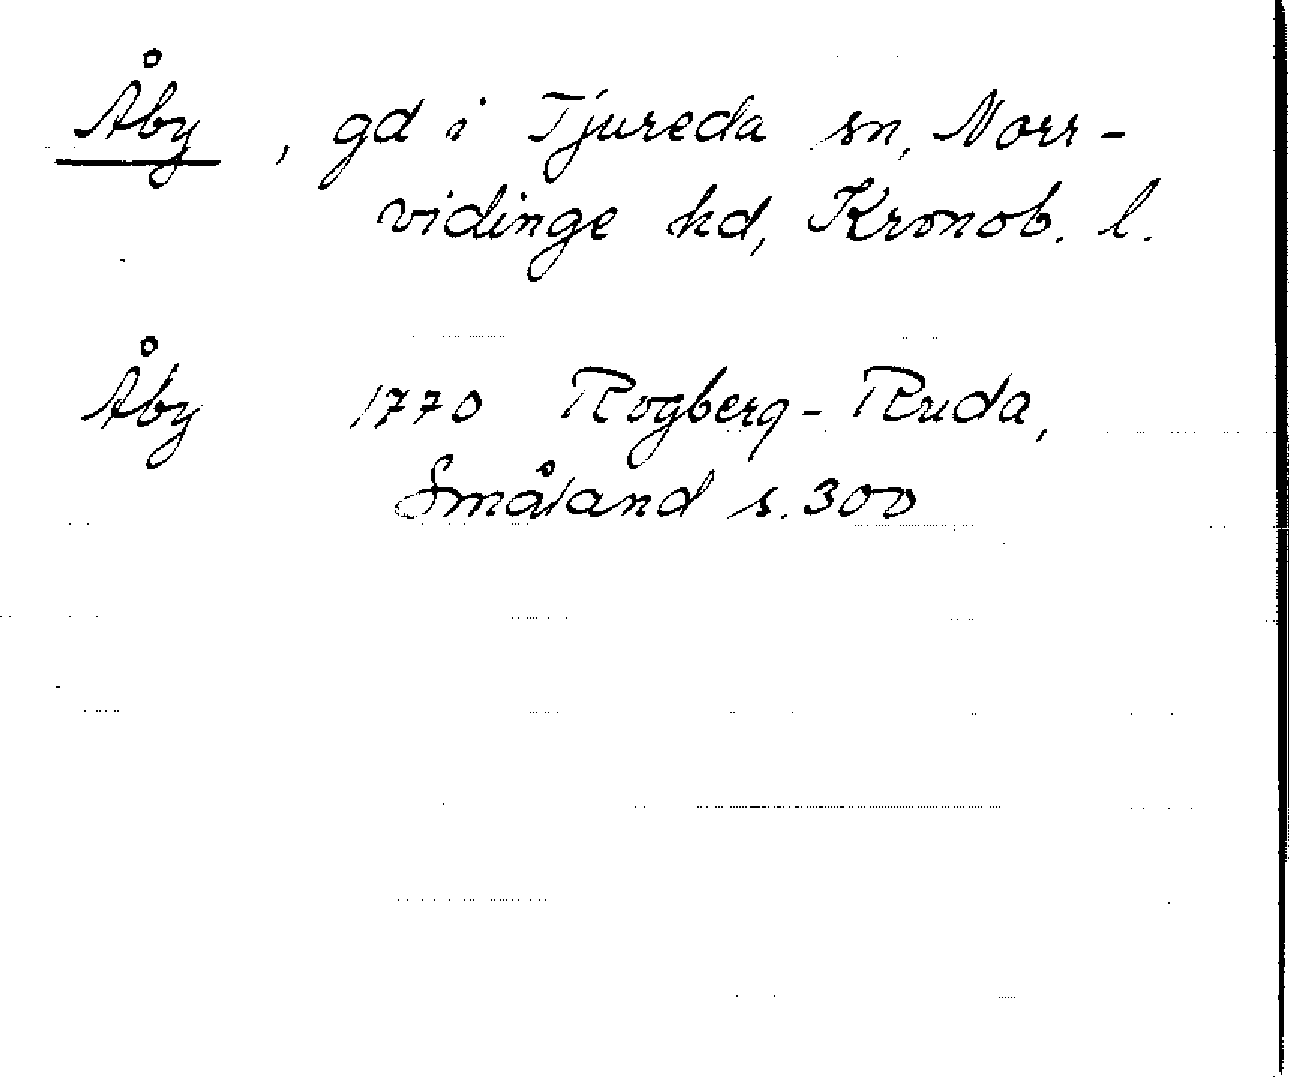 Åby, gd i Tjureda sn, Norr-
vidinge hd, Kronob. l.
Åby 1770 Rogberg-Ruda,
Småland s. 300